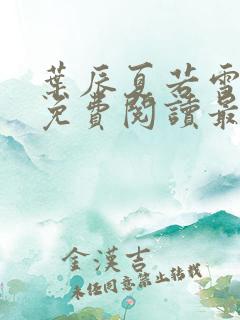 葉辰夏若雪
免費閱讀最
金漢吉
未經同意禁止轉載